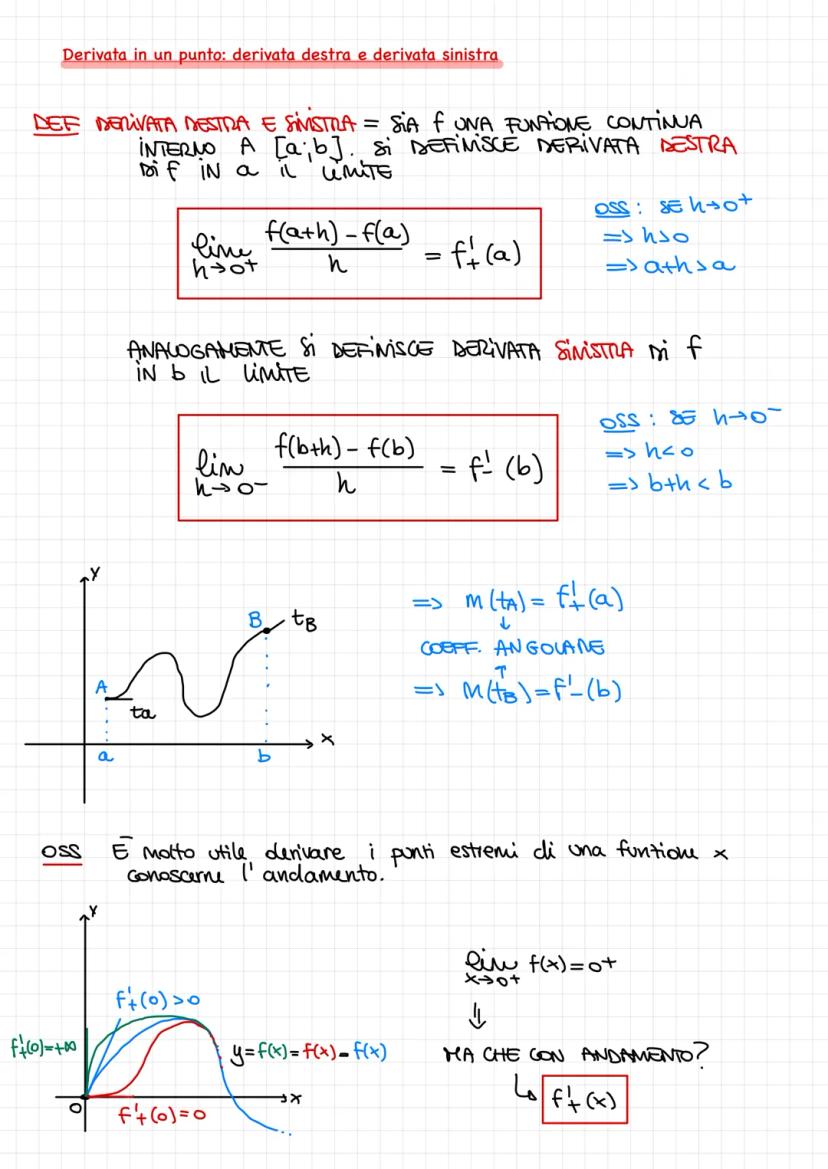 Derivata in un punto: derivata destra e derivata sinistra
DEF DERIVATA DESTRA E SINISTRA = SIA f UNA FUNZIONE CONTINUA
INTERNO A [a;b]. SI DEFINISCE DERIVATA DESTRA
DI f IN a IL LIMITE
lim h→0+ f(a+h) - f(a) / h = f'+(a)
OSS: SE h→0+
=> h>0
=> a+h>a
ANALOGAMENTE SI DEFINISCE DERIVATA SINISTRA DI f
IN b IL LIMITE
lim h→0- f(b+h) - f(b) / h = f'-(b)
OSS: SE h→0-
=> h<0
=> b+h<b
y
B tB
A
ta
x
a b
=> m(tA) = f'+(a)
↓
COEFF. ANGOLARE
↑
=> m(tB) = f'-(b)
OSS È molto utile derivare i punti estremi di una funzione x
conoscerne l'andamento.
y
f'+(0)>0
f'+(0)=+∞
y=f(x)=f(x)-f(x)
x
0
f'+(0)=0
lim x→0+ f(x)=0+
⇓
MA CHE CON ANDAMENTO?
↳ f'+(x)